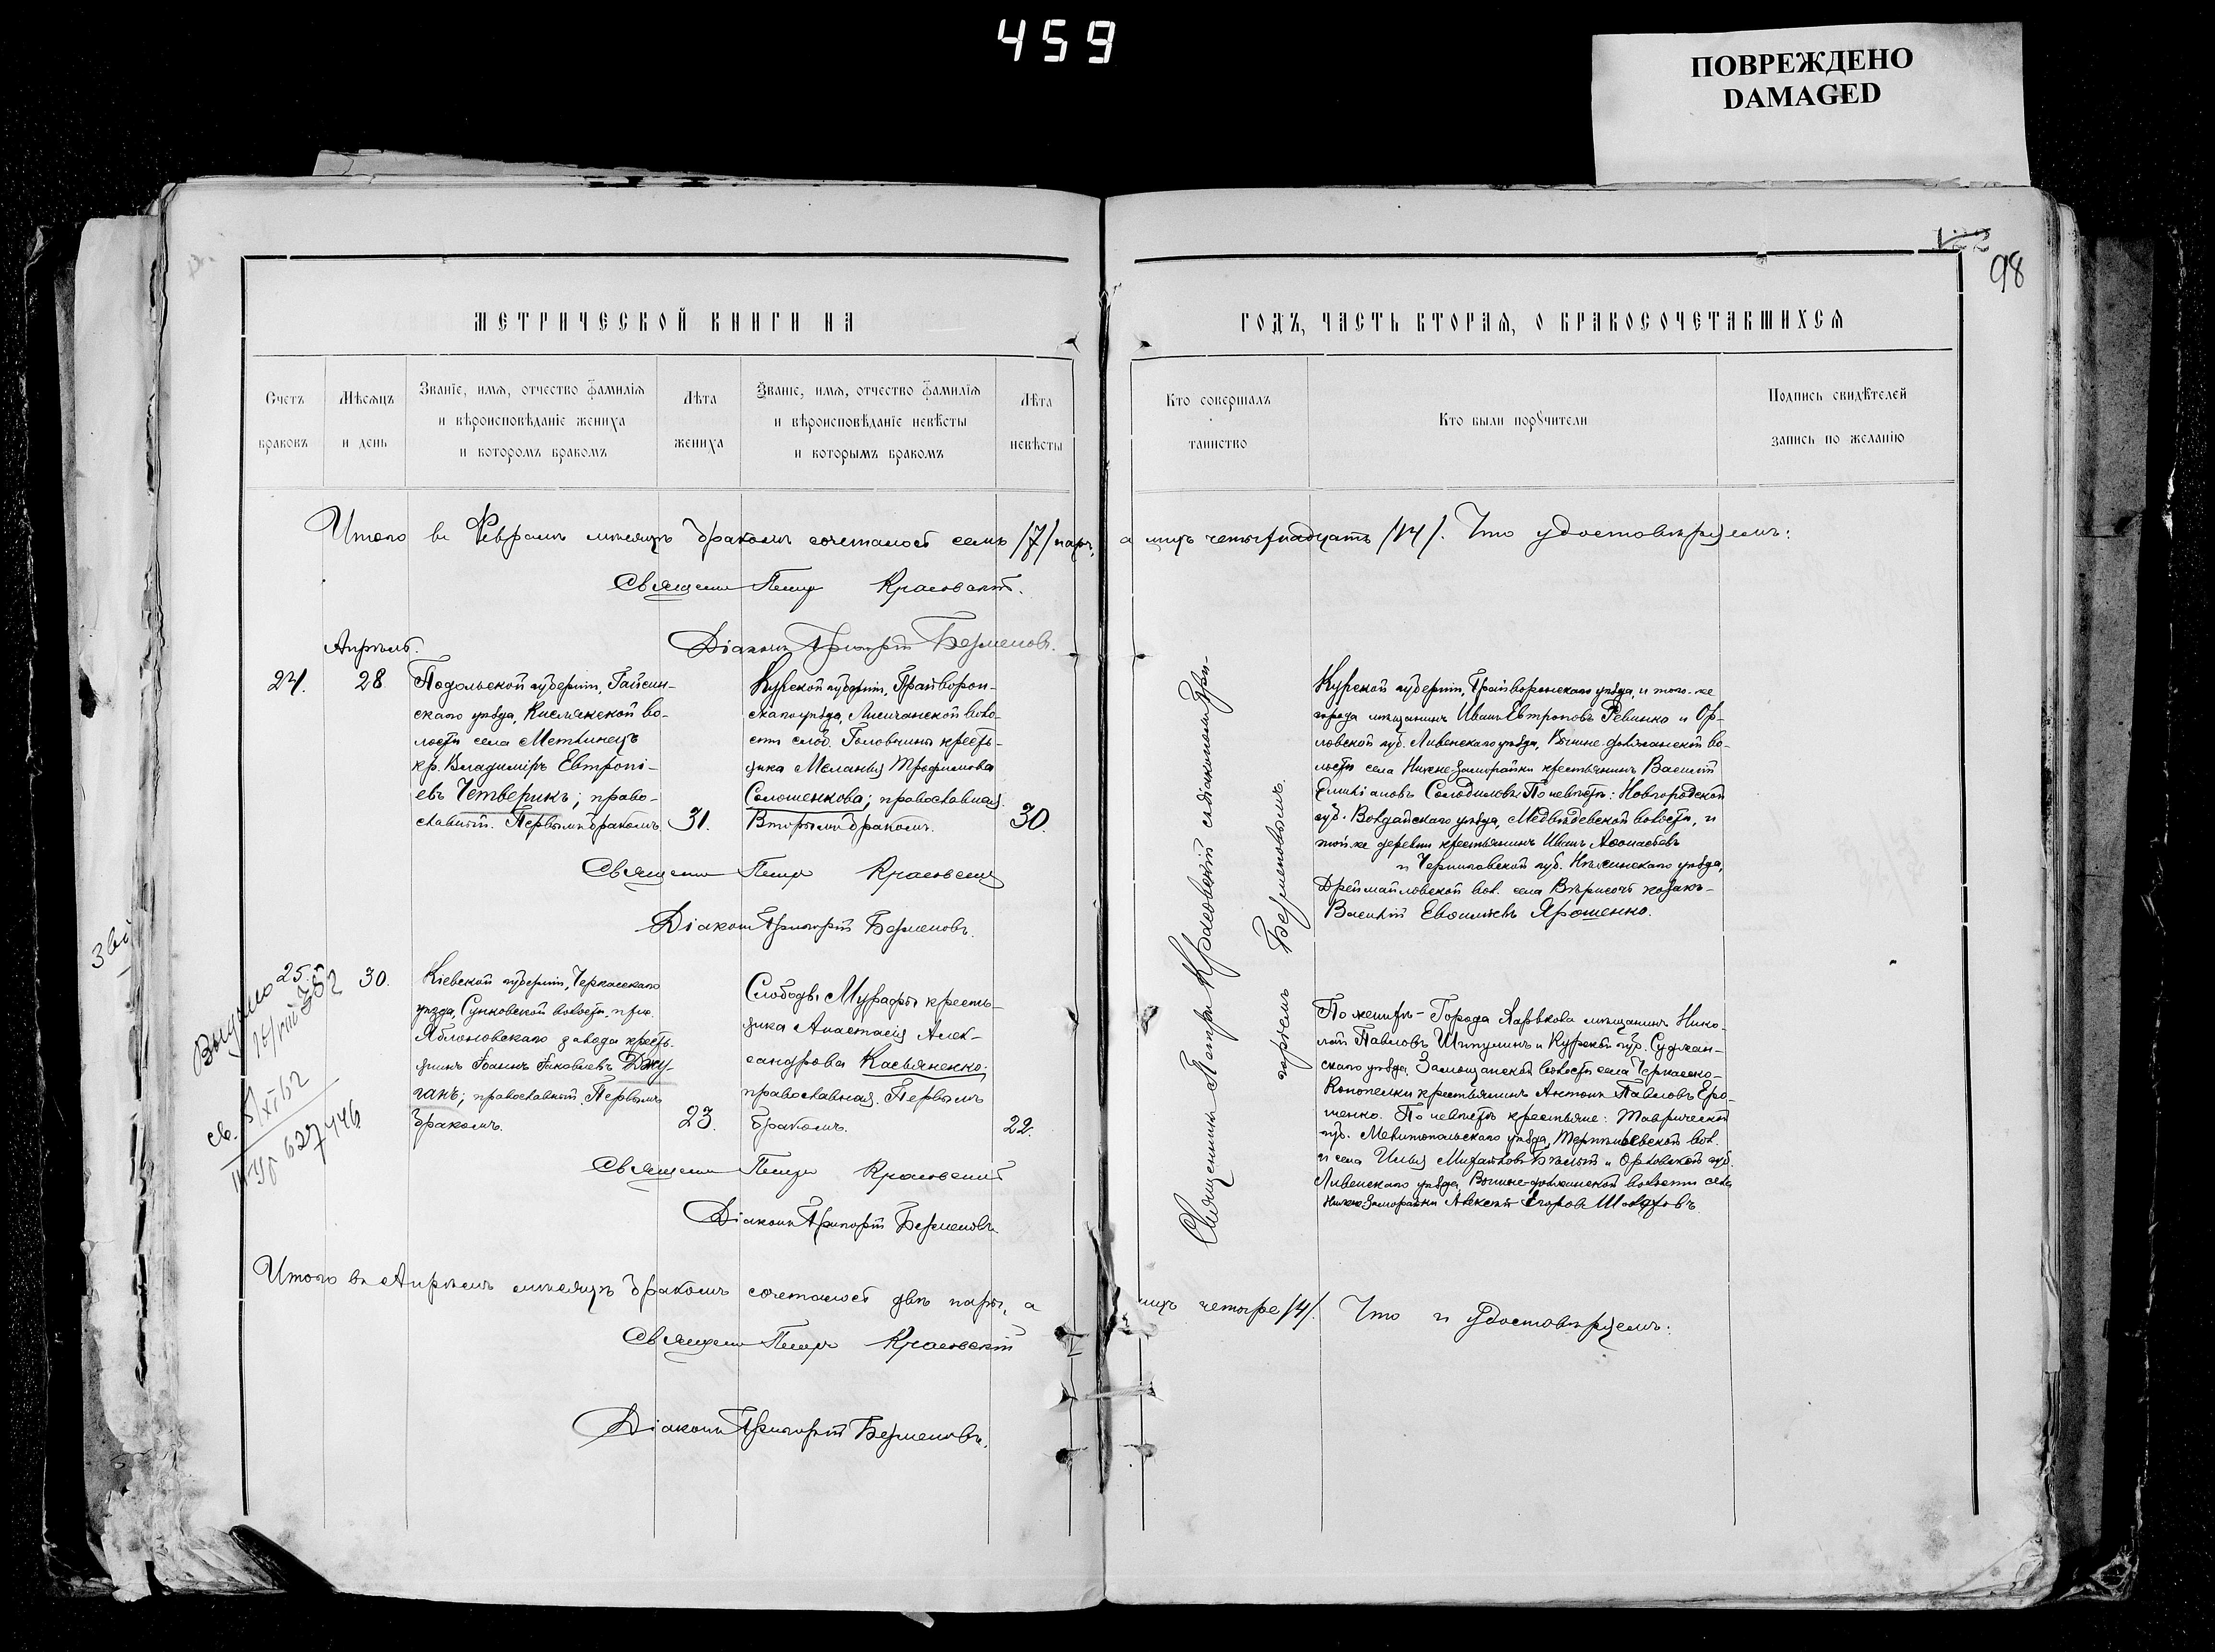 459
ПОВРЕЖДЕНО
DAMAGED
98
МЕТРИЧЕСКОЙ КНИГИ НА
ГОДЪ, ЧАСТЬ ВТОРАЯ, О БРАКОСОЧЕТАВШИХСЯ
Счетъ
браковъ
Мѣсяцъ
и день
Званіе, имя, отчество фамилія
и вѣроисповѣданіе жениха
и которомъ бракомъ
Лѣта
жениха
Званіе, имя, отчество фамилія
и вѣроисповѣданіе невѣсты
и которымъ бракомъ
Лѣта
невѣсты
Кто совершалъ
таинство
Кто были поручители
Подпись свидѣтелей
запись по желанію
Итого въ Февралѣ мѣсяцѣ бракомъ сочеталось семь /7/ паръ, а лицъ четырнадцать /14/. Что удостовѣряемъ:
Священ Петръ Красовскій.
Діаконъ Григорій Безменовъ.
Апрѣль.
24.
28
Подольской губерніи, Гайсин-
скаго уѣзда, Кислякской во-
лости села Метвинецъ
кр. Владиміръ Евтропі-
евъ Четверикъ; право-
славный. Первымъ бракомъ
31.
Курской губерніи, Грайворон-
скаго уѣзда, Лисичанской воло-
сти слоб. Головчины кресть-
янка Меланья Трофимова
Солошенкова; православная.
Вторымъ бракомъ.
30.
Священ Петръ Красовскій
Діаконъ Григорій Безменовъ.
Священникъ Петръ Красовскій съ діакономъ Гри-
горіемъ Безменовымъ.
Курской губерніи, Грайворонскаго уѣзда, и того-же
города мѣщанинъ Иванъ Евтроповъ Ревинко и Ор-
ловской губ. Ливенскаго уѣзда, во-
лости села крестьянинъ Василій
Солодиловъ По невѣстѣ: Новгородской
губ. Волдайскаго уѣзда, Медвѣдевской волости, и
той-же деревни крестьянинъ Иванъ Аѳонасьевъ
и Черниговской губ. Нѣжинскаго уѣзда,
Дреймайловской вол. села козакъ
Василій Ярошенко.
25.
30.
Кіевской губерніи, Черкасскаго
уѣзда, Сунковской волости, при
Яблоновскаго завода кресть-
янинъ Іоаннъ Іаковлевъ Джу-
ганъ; православный. Первымъ
бракомъ.
23.
Слободы Мурафы кресть-
янка Анастасія Алек-
сандрова Касьяненко;
православная. Первымъ
бракомъ.
22.
Священ Петръ Красовскій
Діаконъ Григорій Безменовъ.
По женихѣ - Города Харькова мѣщанинъ Нико-
лай Павловъ Шпулинъ и Курской губ. Суджан-
скаго уѣзда, Замощанской волости села Черкасско-
Конопелки крестьянинъ Антонъ Павловъ Еро-
шенко. По невѣстѣ крестьяне: Таврической
губ. Мелитопольскаго уѣзда, вол.
и села Илья Михайловъ Бѣлый и Орловской губ.
Ливенскаго уѣзда, волости села
Алексѣй Егоровъ
Итого въ Апрѣлѣ мѣсяцѣ бракомъ сочеталось двѣ пары, а лицъ четыре /4/. Что и удостовѣряемъ:
Священ Петръ Красовскій
Діаконъ Григорій Безменовъ.